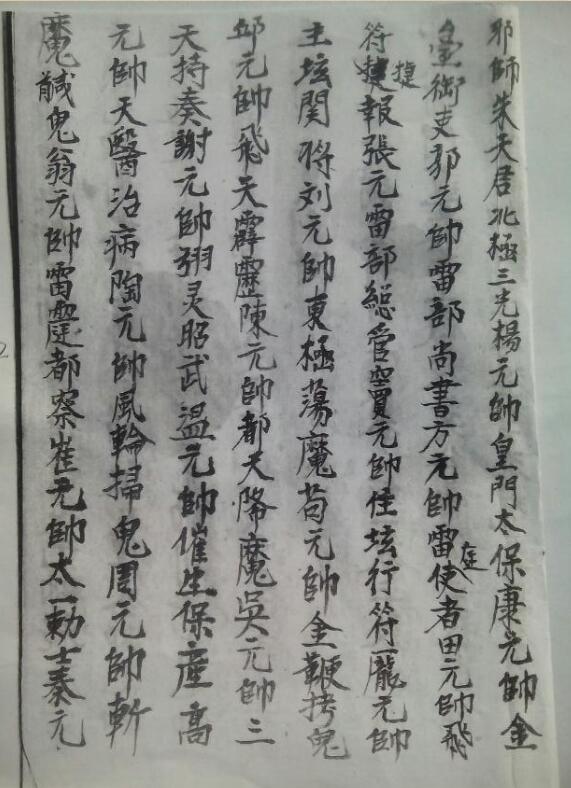 邪師朱天君北極三光楊元帥皇門太保康元帥金
臺衛吏郭元帥雷部尚書方元帥雷霆使者田元帥飛
符捷報張元雷部總管竇元帥侍坛行符龐元帥
主坛関将刘元帥東極蕩魔苟元帥金鞭拷鬼
邱元帥飛天霹靂陳元帥都天降魔吳元帥三
天持奏謝元帥翊灵昭武温元帥催生保産高
元帥天醫治病陶元帥風輪掃鬼周元帥斬
魔馘鬼翁元帥雷霆都察崔元帥太一勅士秦元